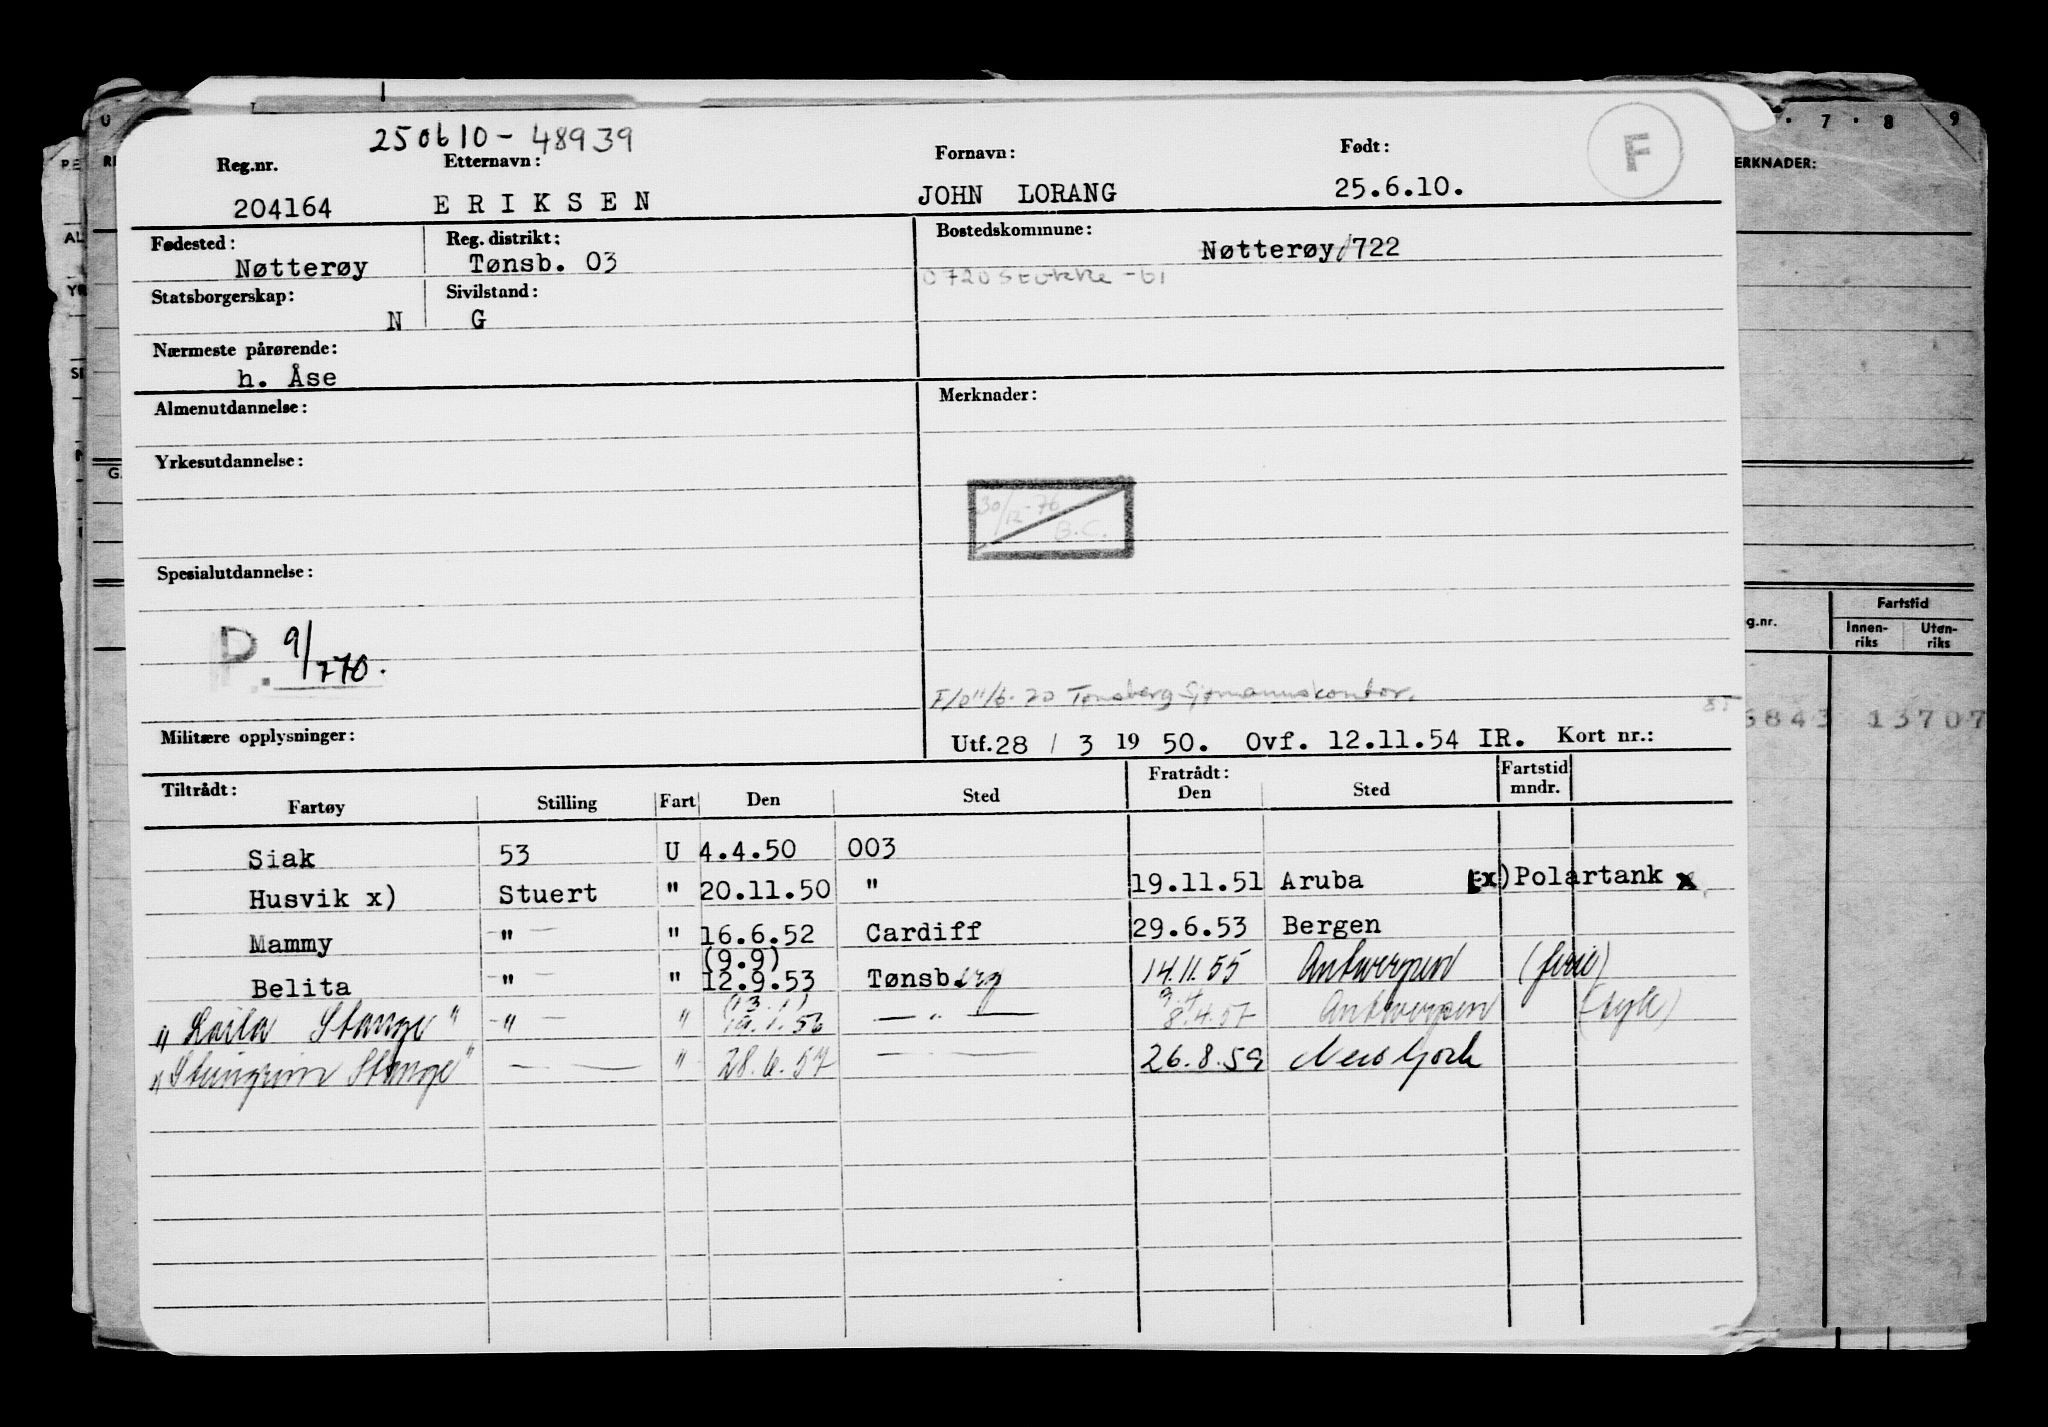 250610-48939
Reg.nr. Etternavn: Fornavn: Født: F
204164 ERIKSEN JOHN LORANG 25.6.10.
Fødested: Reg. distrikt: Bostedskommune:
Nøtterøy Tønsb. 03 Nøtterøy 722
0720 Stokke -61
Statsborgerskap: Sivilstand:
N G
Nærmeste pårørende:
h. Åse
Almenutdannelse: Merknader:
Yrkesutdannelse:
30/12-76
B.C.
Spesialutdannelse:
P. 9/770.
Tønsberg Sjømannskontor.
Militære opplysninger: Utf. 28 / 3 19 50. Ovf. 12.11.54 IR. Kort nr.:
Tiltrådt: Fratrådt: Fartstid
Fartøy Stilling Fart Den Sted Den Sted mndr.
Siak 53 U 4.4.50 003
Husvik x) Stuert " 20.11.50 " 19.11.51 Aruba x) Polartank x
Mammy " " 16.6.52 Cardiff 29.6.53 Bergen
(9.9)
Belita " " 12.9.53 Tønsberg 14.11.55 Antwerpen (ferie)
"Laila Stange" - " - " — " — 8.4.57 Antwerpen
"Steingrim Stange" — — " 28.6.57 — — 26.8.59 New York
7 8 9
ERKNADER:
Fartstid
g.nr. Innen-riks Uten-riks
6843 13707